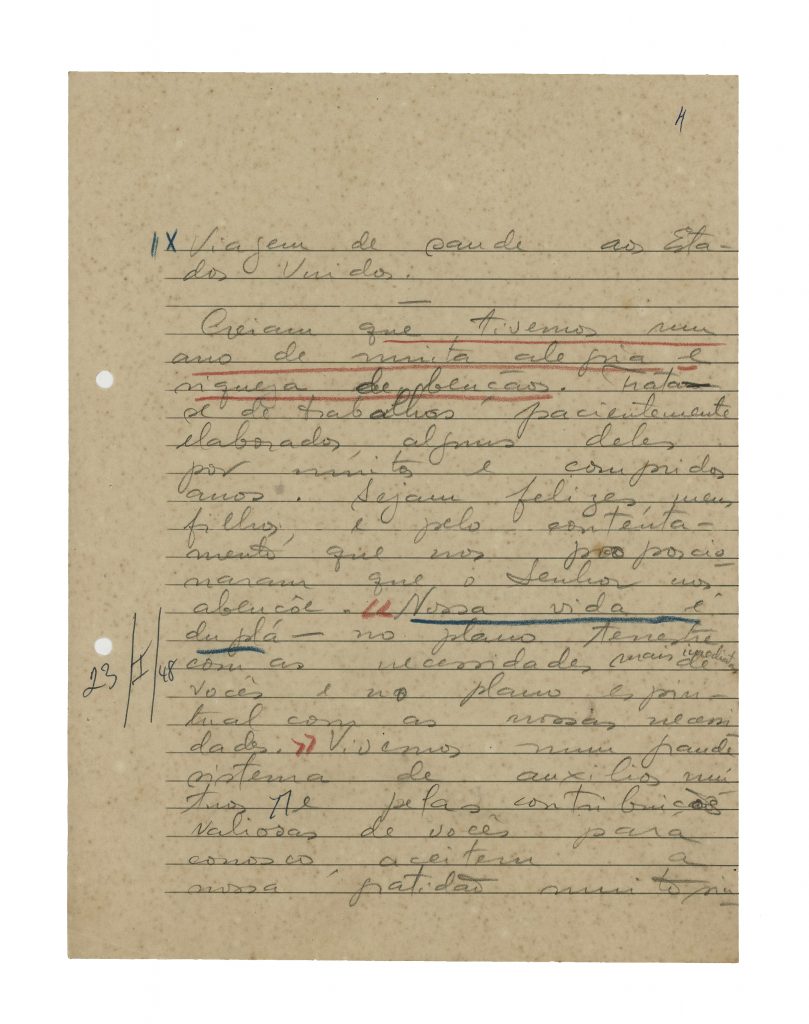 4
IX Viagem de saude aos Esta-
dos Unidos.
Creiam que tivemos um
ano de muita alegria e
riqueza de bençãos. Trata-
se de trabalhos, pacientemente
elaborados, alguns deles
por muitos e compridos
anos. Sejam felizes, meus
filhos, e pelo contenta-
mento, que nos proporcio
naram que o Senhor nos
abençõe. «Nossa vida é
duplá — no plano terrestre
com as necessidades mais imediatas de
23/I/48
vocês e no plano espiri-
tual com as nossas necessi
dades.» Vivemos num grande
sistema de auxilios mú
tuos e pelas contribuições
valiosas de vocês para
conosco, aceitem a
nossa gratidão muito sin